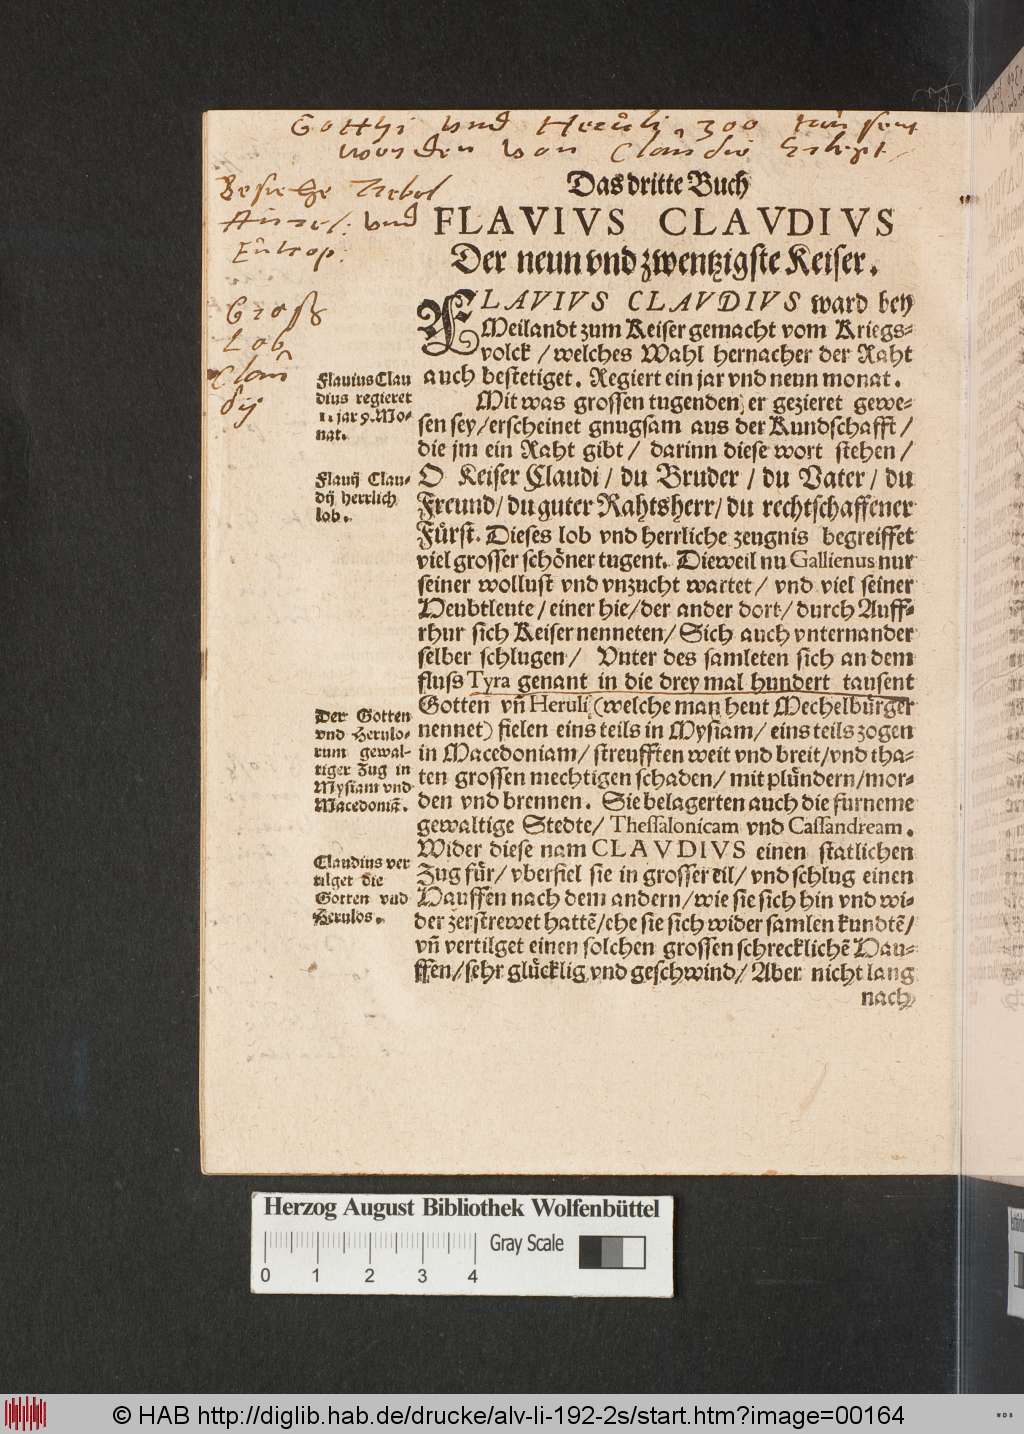 Gotthi und Heruli 300 tausent
worden von Claudio
Besiehe Trebel
und
Eutrop:
Gross
Lob
Claudij
Das dritte Buch
FLAVIVS CLAVDIVS
Der neun vnd zwentzigste Keiser.
FLAVIVS CLAVDIVS ward bey
Meilandt zum Keiser gemacht vom Kriegs-
volck / welches Wahl hernacher der Raht
auch bestetiget. Regiert ein jar vnd neun monat.
Flauius Clau
dius regieret
1. jar 9. Mo-
nat.
Mit was grossen tugenden er gezieret gewe-
sen sey / erscheinet gnugsam aus der Kundschafft /
die jm ein Raht gibt / darinn diese wort stehen /
O Keiser Claudi / du Bruder / du Vater / du
Freund / du guter Rahtsherr / du rechtschaffener
Fürst. Dieses lob vnd herrliche zeugnis begreiffet
Flauij Clau-
dij herrlich
lob.
viel grosser schöner tugent. Dieweil nu Gallienus nur
seiner wollust vnd vnzucht wartet / vnd viel seiner
Heubtleute / einer hie / der ander dort / durch Auff-
rhur sich Keiser nenneten / Sich auch vnternander
selber schlugen / Vnter des samleten sich an dem
fluss Tyra genant in die drey mal hundert tausent
Gotten vñ Heruli (welche man heut Mechelbürger
nennet) fielen eins teils in Mysiam / eins teils zogen
in Macedoniam / streufften weit vnd breit / vnd tha-
ten grossen mechtigen schaden / mit plündern / mor-
den vnd brennen. Sie belagerten auch die furneme
gewaltige Stedte / Thessalonicam vnd Cassandream.
Der Gotten
vnd Herulo-
rum gewal-
tiger Zug in
Mysiam vnd
Macedoniā.
Wider diese nam CLAVDIVS einen statlichen
Zug für / vberfiel sie in grosser eil / vnd schlug einen
Hauffen nach dem andern / wie sie sich hin vnd wi-
der zerstrewet hattē / ehe sie sich wider samlen kundtē /
vñ vertilget einen solchen grossen schrecklichē Hau-
ffen / sehr glücklig vnd geschwind / Aber nicht lang
Claudius ver
tilget die
Gotten vnd
Herulos.
nach
Herzog August Bibliothek Wolfenbüttel
Gray Scale
0 1 2 3 4
© HAB http://diglib.hab.de/drucke/alv-li-192-2s/start.htm?image=00164